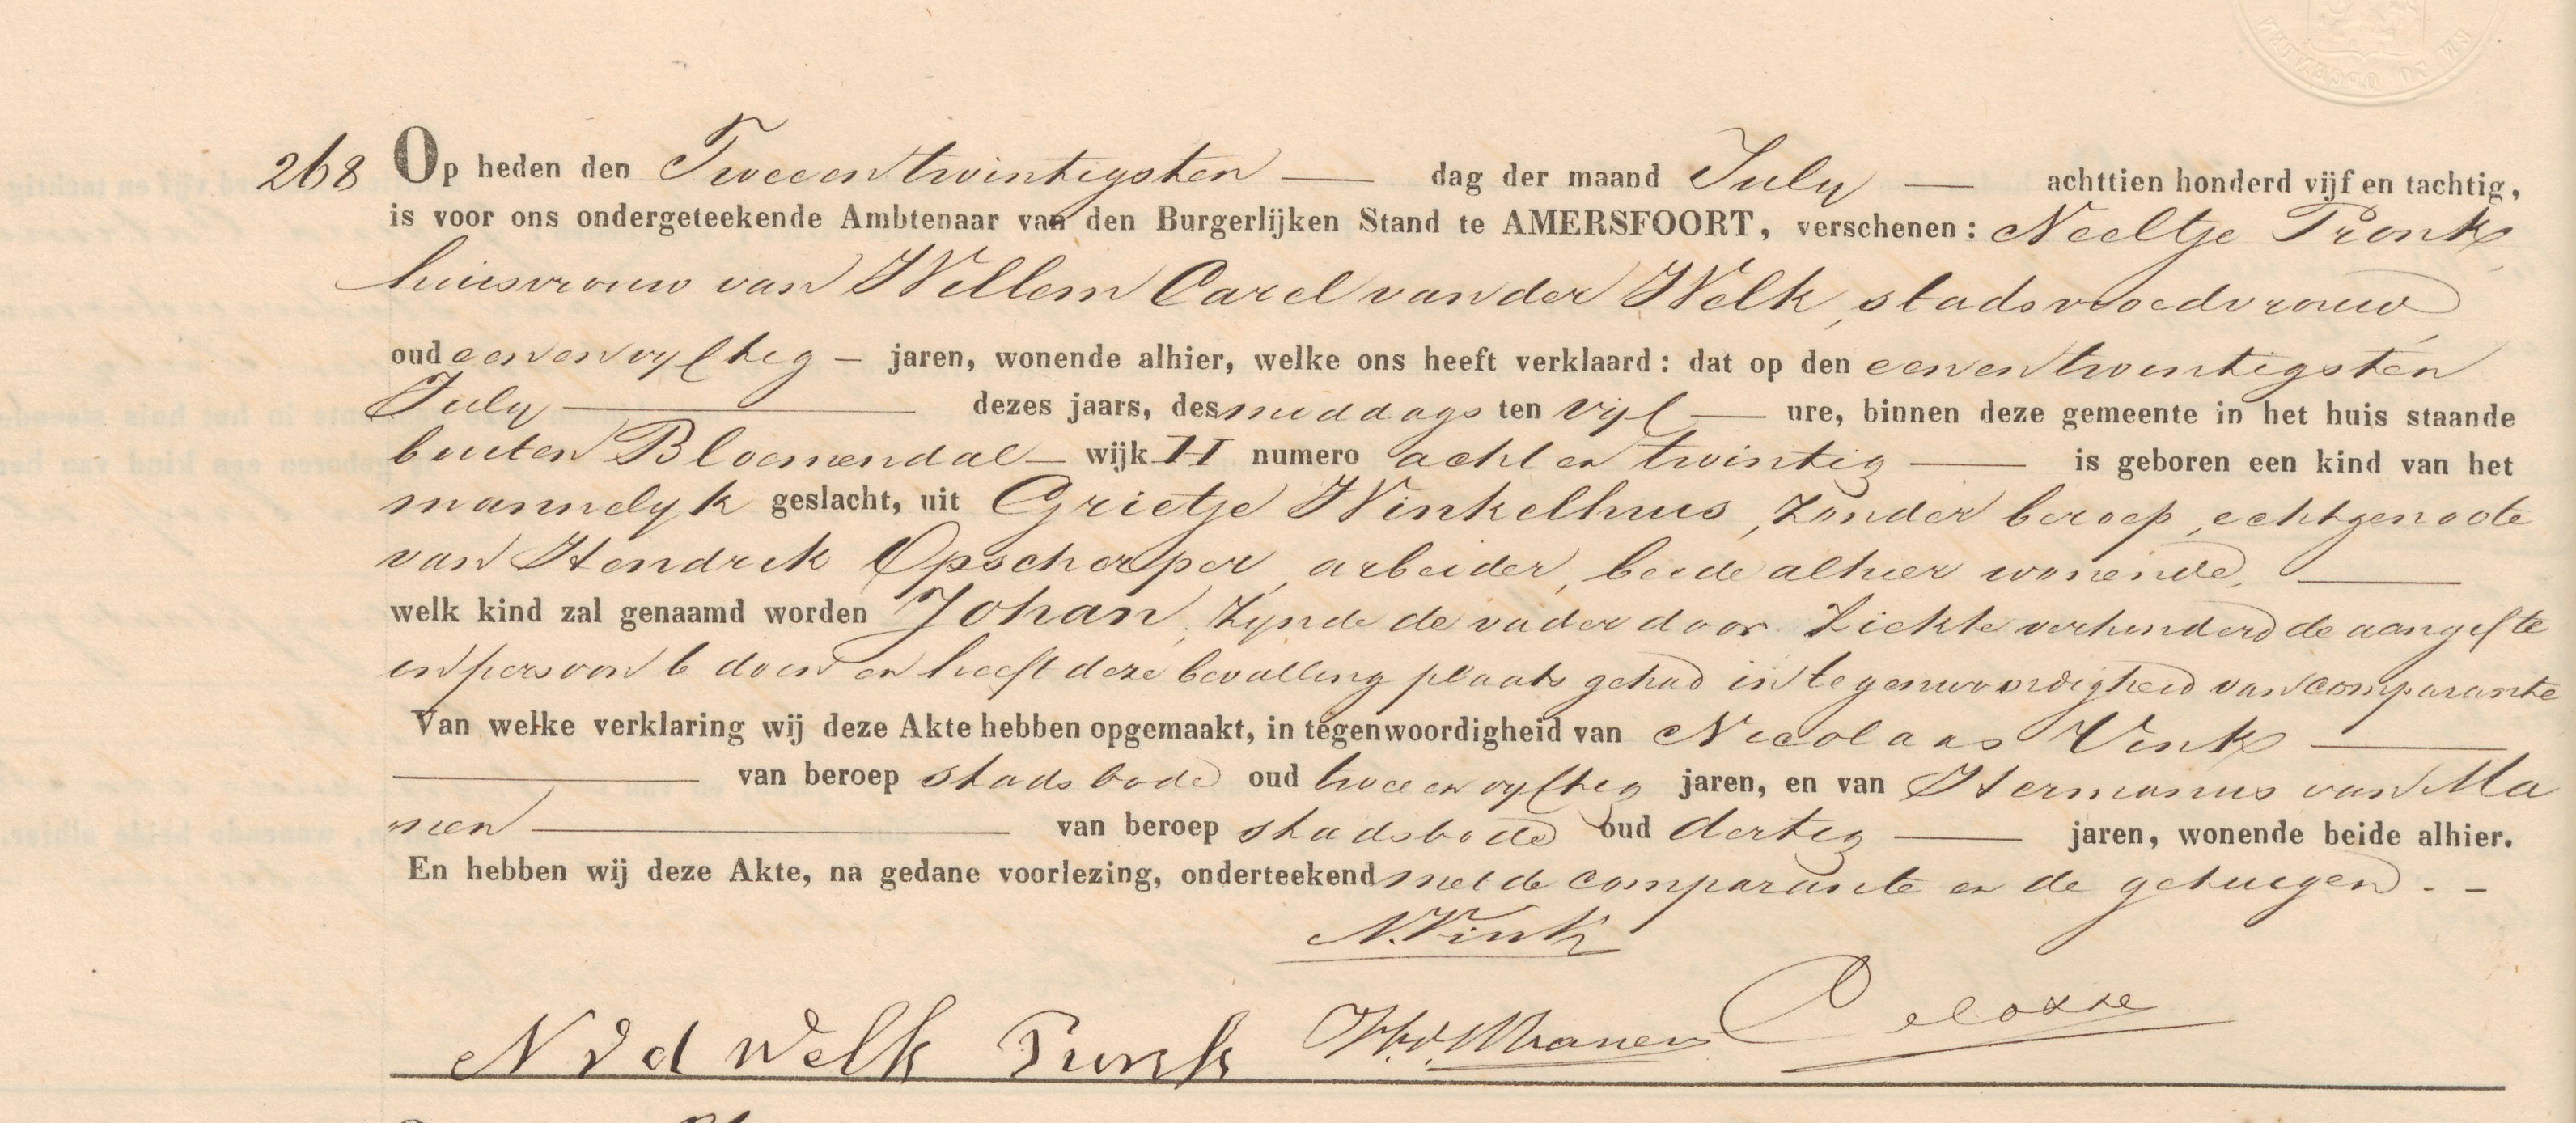 268 Op heden den Tweeentwintigsten — dag der maand July — achttien honderd vijf en tachtig,
is voor ons ondergeteekende Ambtenaar van den Burgerlijken Stand te AMERSFOORT, verschenen: Neeltje Pronk
huisvrouw van Willem Carel van der Welk, stadsvroedvrouw
oud eenenvyftig — jaren, wonende alhier, welke ons heeft verklaard: dat op den eenentwintigsten
July — dezes jaars, des middags ten vijf — ure, binnen deze gemeente in het huis staande
buiten Bloemendal — wijk H numero acht en twintig — is geboren een kind van het
mannelyk geslacht, uit Grietje Winkelhuis, zonder beroep, echtgenoote
van Hendrik Opscherper, arbeider, beide alhier wonende, —
welk kind zal genaamd worden Johan, zynde de vader door ziekte verhinderd de aangifte
in persoon te doen en heeft deze bevalling plaats gehad in tegenwoordigheid van comparante
Van welke verklaring wij deze Akte hebben opgemaakt, in tegenwoordigheid van Nicolaas Vink —
— van beroep stadsbode oud twee en vyftig jaren, en van Hermanus van Ma
nen — van beroep stadsbode oud dertig — jaren, wonende beide alhier.
En hebben wij deze Akte, na gedane voorlezing, onderteekend met de comparante en de getuigen. -
N. Vink
N v d Welk Pronk H. v. Manen